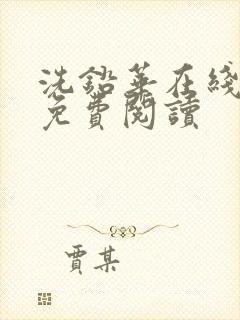 洗鉛華在綫
免費閱讀
賈某